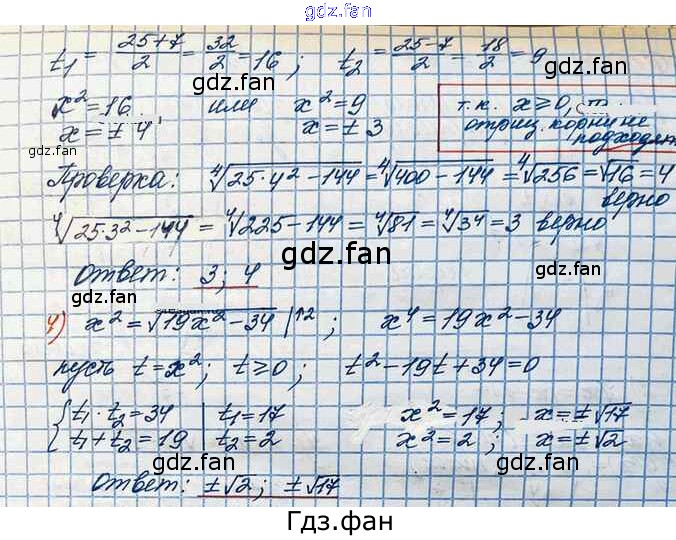 gdz.fan
gdz.fan
t₁ = (25+7)/2 = 32/2 = 16; t₂ = (25-7)/2 = 18/2 = 9
gdz.fan gdz.fan
x² = 16 или x² = 9 т.к. x ⩾ 0, т.
x = ± 4 x = ± 3 отриц. корни не
подходят
gdz.fan gdz.fan
Проверка: ⁴√(25·4² - 144) = ⁴√(400 - 144) = ⁴√256 = √16 = 4
верно
⁴√(25·3² - 144) = ⁴√(225 - 144) = ⁴√81 = ⁴√3⁴ = 3 верно
gdz.fan
gdz.fan
Ответ: 3; 4
gdz.fan gdz.fan
4) x² = √(19x² - 34) |↑2; x⁴ = 19x² - 34
пусть t = x²; t ⩾ 0; t² - 19t + 34 = 0
gdz.fan
{ t₁·t₂ = 34 | t₁ = 17 x² = 17; x = ±√17
t₁ + t₂ = 19 | t₂ = 2 x² = 2; x = ±√2
gdz.fan gdz.fan
Ответ: ±√2; ±√17
gdz.fan
Гдз.фан